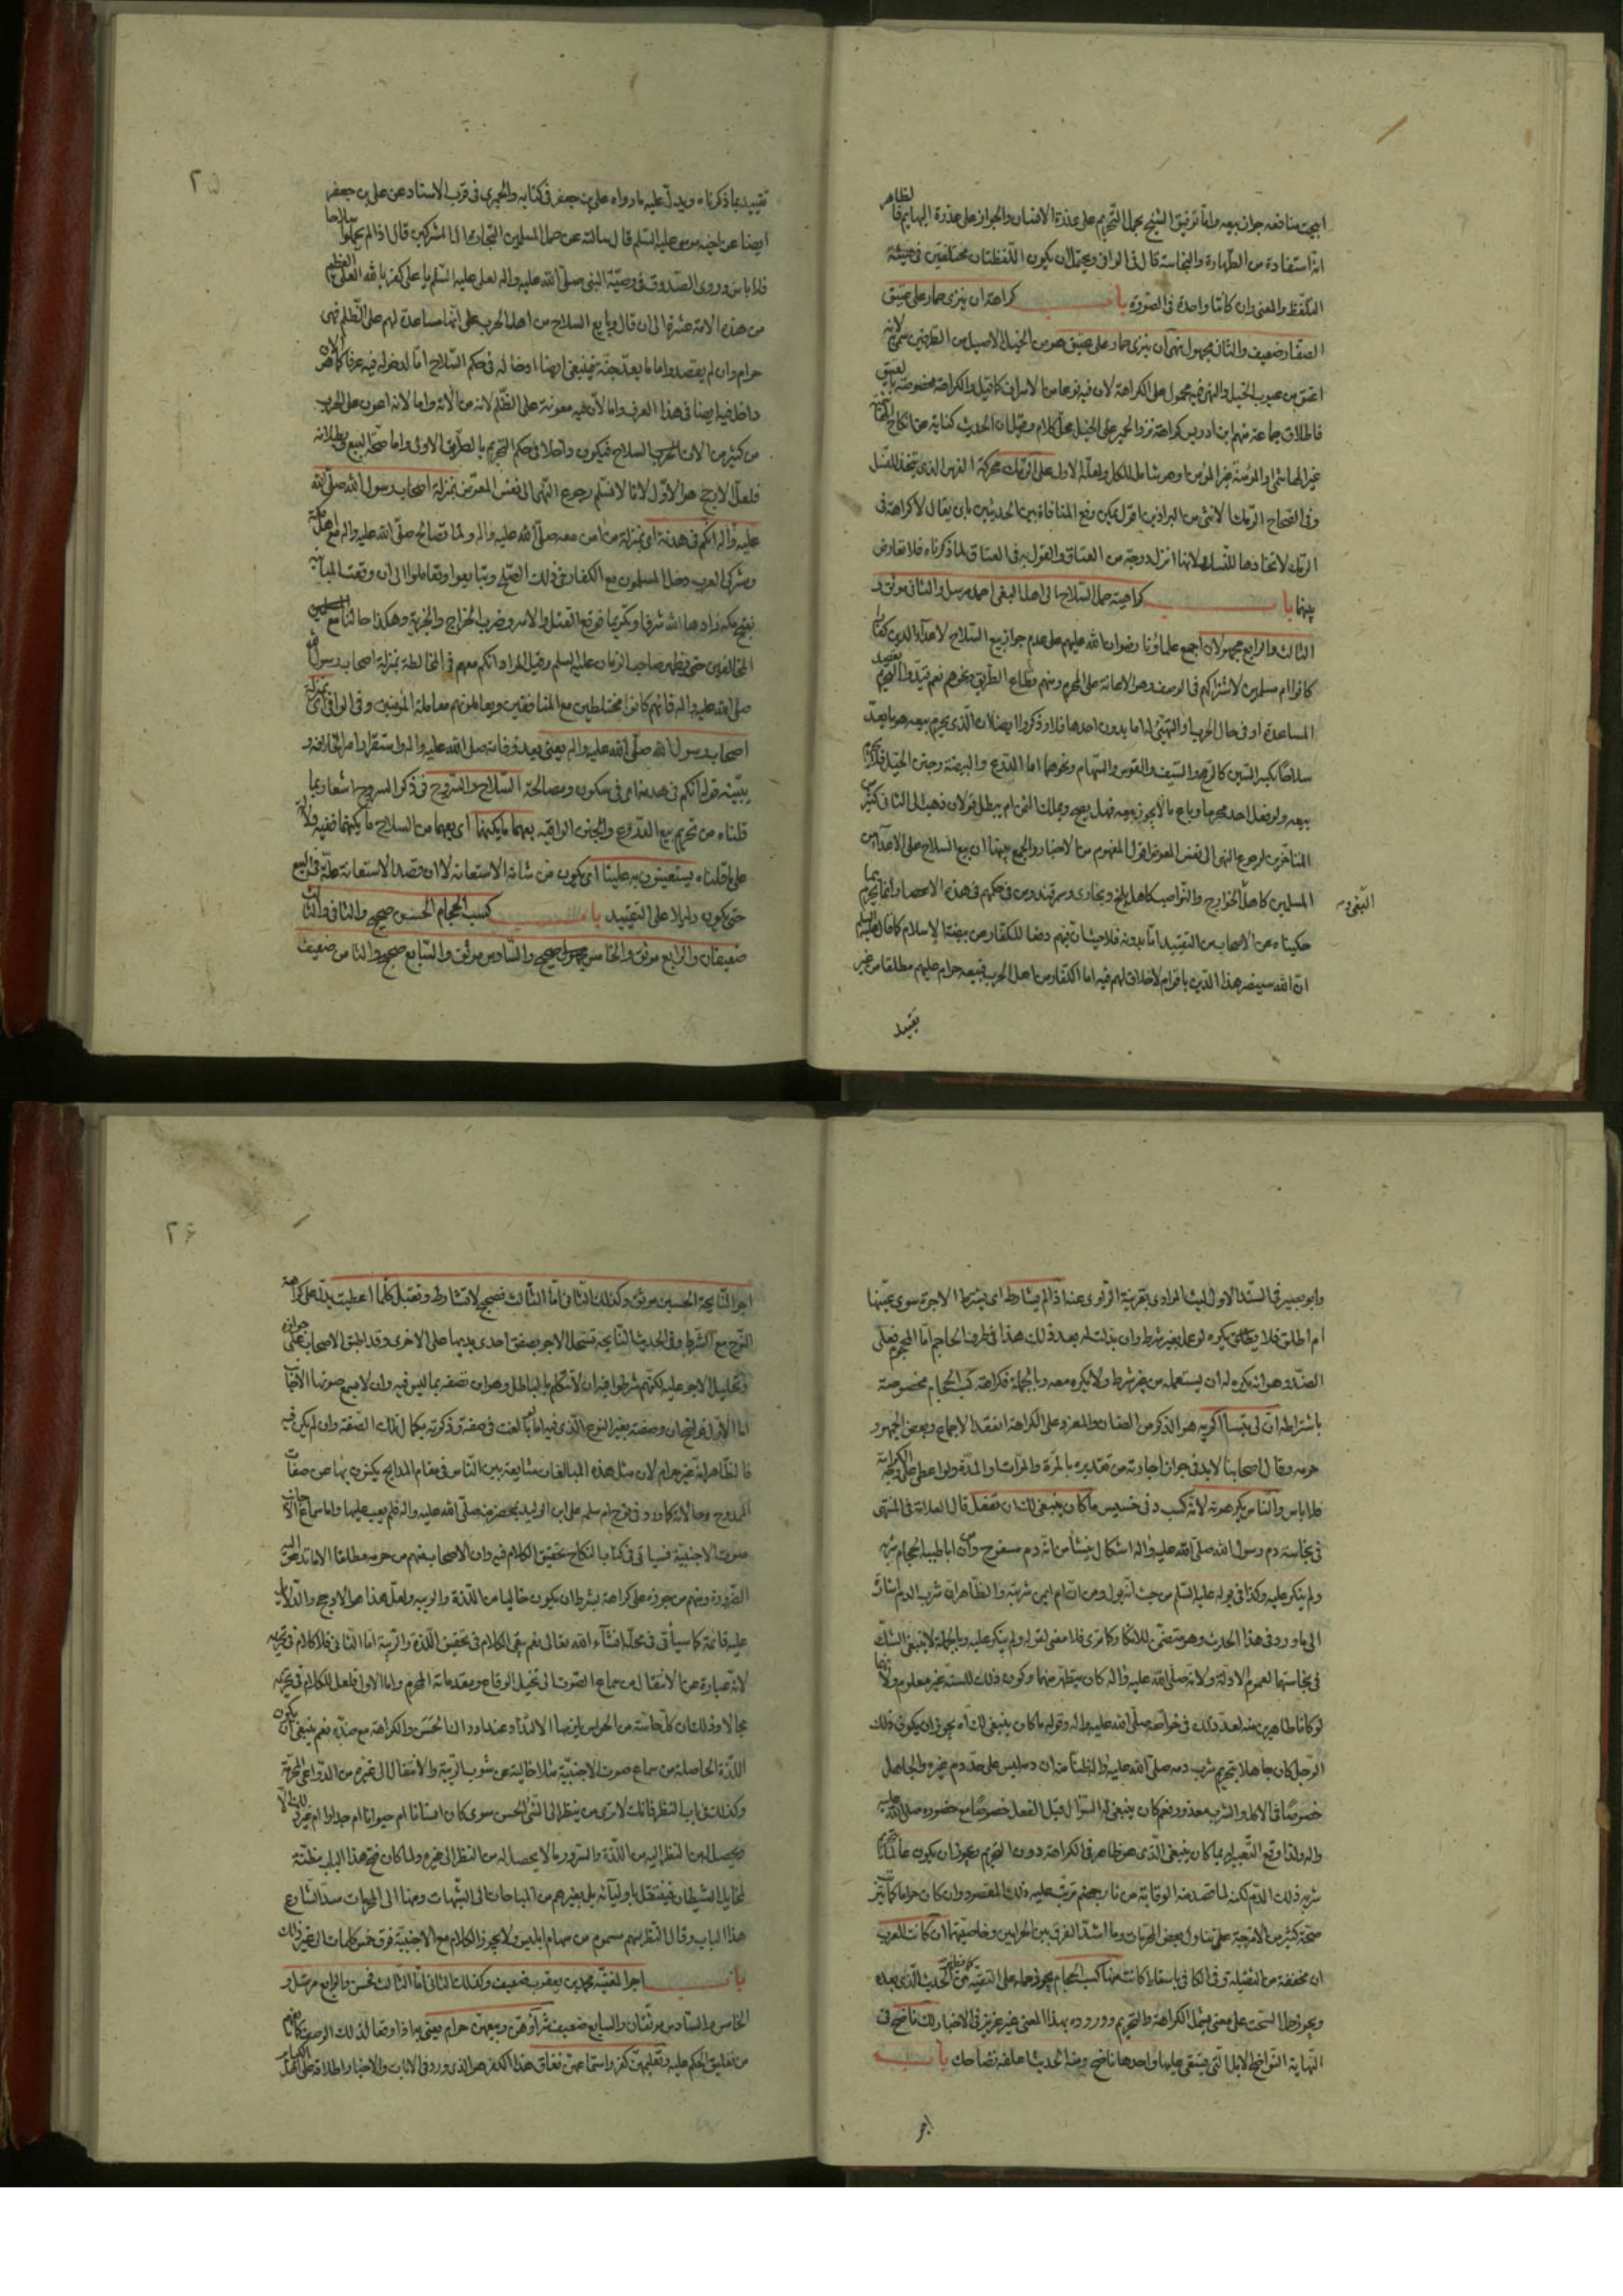 ابيحت منافعه جواز بيعه واما توفيق الشيخ بحمل التحريم على عذرة الانسان والجواز على عذرة البهايم فالظاهر
انه استفادة من الطهارة والنجاسة قال فى الوافى ويحتمل ان يكون اللفظتان مختلفتين فى هيئة
التلفظ والمعنى وان كانتا واحدة فى الصورة باب كراهة ان ينزى حمار على عتيق
الصفار ضعيف والثانى مجهول نهى ان ينزى حمار على عتيق هو من الخيل الاصيل من الطرفين سمى به لانه
اعتق من عيوب الخيل والنهى فيه محمول على الكراهة لان فيه نوعا من الاسراف كما قيل والكراهة مخصوصة بالعتيق
فاطلاق جماعة منهم ابن ادريس كراهة نزو الحمير على الخيل محل كلام وقيل ان الحديث كناية عن انكاح
غير الهاشمى والمؤمنة غير المؤمن وهو شامل للكل ولعله الاول على الرمك محركة الفرس الذى يتخذ للنسل
وفى الصحاح الرمك الانثى من البراذين اقول يمكن رفع المنافاة بين الحديثين بان يقال لا كراهة فى
الرمك لاتخاذها للنسل ولانها انزل درجة من العتاق والقول به فى العتاق لما ذكرناه فلا تعارض
بينهما باب كراهية حمل السلاح الى اهل البغى احمد مرسل والثانى موثق و
الثالث والرابع مجهولان اجمع علماؤنا رضوان الله عليهم على عدم جواز بيع السلاح لاعداء الدين كفارا
كانوا ام مسلمين لاشتراكهم فى الوصف وهو الاعانة على المحرم ومنهم قطاع الطريق ونحوهم نعم قيدوا التحريم بقصد
المساعدة او فى حال الحرب او التهيئ لها اما بدون احدها فلا وذكروا ايضا ان الذى يحرم بيعه هو ما يعد
سلاحا كبير السن كالرمح والسيف والقوس والسهام ونحوها اما الدرع والبيضة وجنن الخيل فلا يحرم
بيعه ولو فعل احد محرما وباع ما لا يجوز بيعه فهل يصح ويملك الثمن ام يبطل قولان ذهب الى الثانى كثير من
المتاخرين لرجوع النهى الى نفس المعوض اقول المفهوم من الاخبار والجمع بينها ان بيع السلاح على الاعداء من
المسلمين كاهل الخوارج والنواصب كاهل بلخ وبخارى وسمرقند ومن فى حكمهم فى هذه الاعصار انما يحرم بما
حكيناه عن الاصحاب من التقييد اما بدونه فلا حيث ان فيهم دفعا للكفار عن بيضة الاسلام كما قال عليه السلم
ان الله سينصر هذا الدين باقوام لا خلاق لهم فيه اما الكفار من اهل الحرب فبيعه حرام عليهم مطلقا من غير
تقييد
٢٥
تقييد بما ذكرناه ويدل عليه ما رواه على بن جعفر فى كتابه والحميرى فى قرب الاسناد عن على بن جعفر
ايضا عن اخيه موسى عليه السلم قال سالته عن حمل المسلمين التجارة الى المشركين قال اذا لم يحملوا سلاحا
فلا باس وروى الصدوق فى وصية النبى صلى الله عليه واله لعلى عليه السلم يا على كفر بالله العلى العظيم
من هذه الامة عشرة الى ان قال وبايع السلاح من اهل الحرب على انها مساعدة لهم على الظلم فهى
حرام وان لم يقصدوا اما ما يعد جنة فينبغى ايضا ادخاله فى حكم السلاح اما لدخوله فيه عرفا كما هو الان
داخل فيه ايضا فى هذا العرف واما لان فيه معونة على الظلم لانه من الاته واما لانه اعون على الحرب
من كثير من الات الحرب السلاح فيكون داخلا فى حكم التحريم بالطريق الاولى واما صحة البيع فى بطلانه
فلعل الارجح هو الاول لانا لا نسلم رجوع النهى الى نفس المعوض بمنزلة اصحاب رسول الله صلى الله
عليه واله انكم فى هدنة اى بمنزلة من امن معه صلى الله عليه واله ولما تصالح صلى الله عليه واله مع اهل مكة
ومشركى العرب دخل المسلمون مع الكفار فى ذلك الصلح وتبايعوا وتعاملوا الى ان وقعت المباينة
بفتح مكة زادها الله شرفا وتكريما فوقع القتل والاسر وضرب الخراج والجزية وهكذا حالنا مع المسلمين
المخالفين حتى يظهر صاحب الزمان عليه السلم وقيل المراد انكم معهم فى المخالطة بمنزلة اصحاب رسول الله
صلى الله عليه واله فانهم كانوا مختلطين مع المنافقين ويعاملونهم معاملة المؤمنين وفى الوافى اى بمنزلة
اصحاب رسول الله صلى الله عليه واله يعنى بعد وفاته صلى الله عليه واله واستقرار امر الخلافة و
يبينه قوله انكم فى هدنة اى فى سكون ومصالحة السلاح والسروج فى ذكر السروج اشعار بما
قلناه من تحريم بيع الدروع والجنن الواقية بعهما ما يكنهما اى بعهما من السلاح ما يكنهما ففيه دلالة
على ما قلناه يستعينون به علينا اى يكون من شانه الاستعانة لا ان قصد الاستعانة علة فى البيع
حتى يكون دليلا على التقييد باب كسب الحجام الحسن صحيح والثانى والثالث
ضعيفان والرابع موثق والخامس صحيح والسادس موثق والسابع صحيح والثامن ضعيف
وابو بصير فى السند الاول ليث المرادى بقرينة الراوى عنه اذا لم يشارط اى يشترط الاجرة سوى عينها
ام اطلق فلا يكره لو عمل بغير شرط وان بذلت له بعد ذلك هذا فى طرف الحاجم اما المحجوم فعلى
الضد وهو انه يكره له ان يستعمله من غير شرط ولا يكره معه وبالجملة فكراهة كسب الحجام مخصوصة
باشتراطه ان لى تيسا اكريه هو الذكور من الضان والمعز وعلى الكراهة انعقد الاجماع وبعض الجمهور
حرمه وقال اصحابنا لابد فى جواز اجارته من تقديره بالمرة والمرات او المدة ولو اعطى على وجه الكرامة
فلا باس والناس يكرهونه لانه كسب دنى خسيس ما كان ينبغى لك ان تفعل قال العلامة فى المنتهى
فى نجاسة دم رسول الله صلى الله عليه واله اشكال ينشا من انه دم مسفوح ومن ان ابا طيبة الحجام شربه
ولم ينكر عليه وكذا فى بوله عليه السلم من حيث انه بول ومن ان ام ايمن شربته والظاهر ان شرب الدم اشارة
الى ما ورد فى هذا الحديث وهو متضمن للانكار كما ترى فلا معنى لقوله ولم ينكر عليه وبالجملة لا ينبغى الشك
فى نجاستهما لعموم الادلة ولانه صلى الله عليه واله كان يتطهر منهما وكون ذلك للسنة غير معلوم ولانهما
لو كانا طاهرين منه لعد ذلك فى خواصه صلى الله عليه واله وقوله ما كان ينبغى لك اه يجوز ان يكون ذلك
الرجل كان جاهلا بتحريم شرب دمه صلى الله عليه واله ظنا منه ان دمه ليس على حد دم غيره والجاهل
خصوصا فى الاكل والشرب معذور نعم كان ينبغى له السؤال قبل الفعل خصوصا مع حضوره صلى الله عليه
واله ولذا وقع التعبير بما كان ينبغى الذى هو ظاهر فى الكراهة دون التحريم ويجوز ان يكون عالما بتحريم
شربه ذلك الدم لكنه لما قصد منه الوقاية من نار جهنم ترتب عليه ذلك المقصود وان كان حراما كما ترتب
صحة كثير من الامزجة على تناول بعض المحرمات وما اشد الفرق بين الحرامين وخاصيتهما ان كانت للعرب
ان مخففة من الثقيلة وفى الكافى باسقاط كانت منها كسب الحجام يجوز حمله على التقية كما يظهر من الحديث الذى بعده
ويجوز حمل السحت على معنى يشمل الكراهة والتحريم ووروده بهذا المعنى غير عزيز فى الاخبار لك ناضح فى
النهاية النواضح الابل التى يستقى عليها واحدها ناضح ومنه الحديث اعلفه نضاحك باب
اجر
٢٦
اجر النايحة الحسين موثق وكذلك الثانى اما الثالث فصحيح لا تشارط وتقبل كلما اعطيت يدل على كراهة
النوح مع الشرط وفى الحديث النايحة تستحل الاجر بصفق احدى يديها على الاخرى وقد اطبق الاصحاب على جوازه
وتحليل الاجر عليه لكنهم شرطوا فيه ان لا تتكلم بالباطل وهو ان تصفه بما ليس فيه وان لا يسمع صوتها الاجانب
اما الاول فواضح ان وصفته بغير النوح الذى فيه اما اذا بالغت فى صفته وذكرته بكمال تلك الصفة وان لم يكن فيه
فالظاهر انه غير حرام لان مثل هذه المبالغات شايعة بين الناس فى مقام المدايح يكنون بها عن صفات
الممدوح وحالاته كما ورد فى نوح ام سلمة على ابن الوليد بحضرته صلى الله عليه واله فلم يعب عليها واما سماع الاجانب
صوت الاجنبية فسياتى فى كتاب النكاح تحقيق الكلام فيه وان الاصحاب منهم من حرمه مطلقا الا ما تدعو اليه
الضرورة ومنهم من جوزه على كراهة بشرط ان يكون خاليا من اللذة والريبة ولعل هذا هو الاوجه والدلائل
عليه قائمة كما سياتى فى محله انشاء الله تعالى نعم بقى الكلام فى تحقيق اللذة والريبة اما الثانى فلا كلام فى تحريمه
لانه عبارة عن الانتقال من سماع الصوت الى تخيل الوقاع ومقدماته المحرم واما الاول فلعل للكلام فى تحريمه
مجالا وذلك ان كل حاسة من الحواس يلزمها الالتذاذ عند ادراك الحسن والكراهة مع ضده نعم ينبغى ان يكون
اللذة الحاصلة من سماع صوت الاجنبية مثلا خالية عن شوب الريبة والانتقال الى غيره من الدواعى المحرمة
وكذلك فى باب النظر فانك لا ترى من ينظر الى الشئ الحسن سوى كان انسانا ام حيوانا ام جدارا ام غيره
ويحصل له من النظر اليه من اللذة والسرور ما لا يحصل له من النظر الى غيره ولما كان فتح هذا الباب مظنة
لمخايل الشيطان فينتقل باوليائه بل بغيرهم من المباحات الى الشبهات ومنها الى المحرمات سد الشارع
هذا الباب وقال النظر سهم مسموم من سهام ابليس ولا يجوز الكلام مع الاجنبية فوق خمس كلمات الى غير ذلك
باب اجر المغنية محمد بن يعقوب ضعيف وكذلك الثانى اما الثالث فحسن والرابع مرسل و
الخامس والسادس موثقان والسابع ضعيف شراؤهن وبيعهن حرام يعنى به اذا وقعا لذلك الوصف كما يفهم
من تعليق الحكم عليه وتعليمهن كفر واستماعهن نفاق هذا الكفر هو الذى ورد فى الايات والاخبار اطلاقه على اهل الكبائر